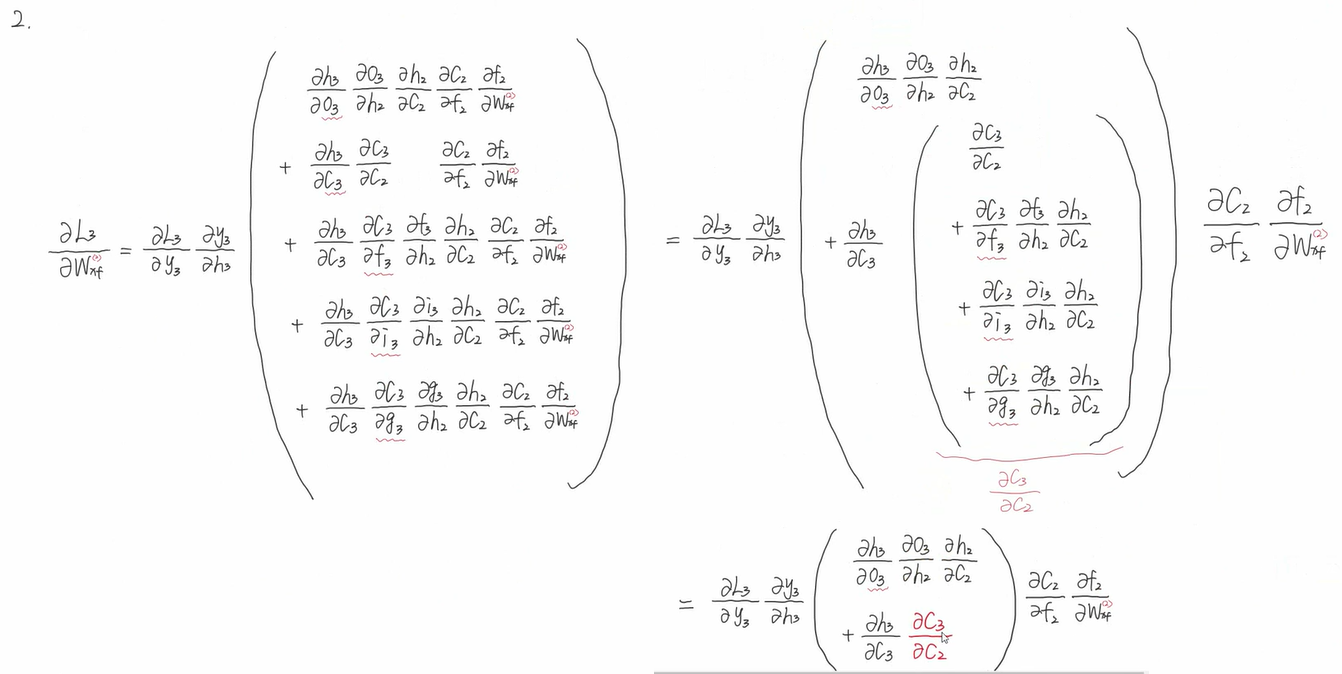 2.
∂L₃/∂W_xf⁽²⁾ = ∂L₃/∂y₃ ∂y₃/∂h₃ ( ∂h₃/∂O₃ ∂O₃/∂h₂ ∂h₂/∂C₂ ∂C₂/∂f₂ ∂f₂/∂W_xf⁽²⁾
+ ∂h₃/∂C₃ ∂C₃/∂C₂ ∂C₂/∂f₂ ∂f₂/∂W_xf⁽²⁾
+ ∂h₃/∂C₃ ∂C₃/∂f₃ ∂f₃/∂h₂ ∂h₂/∂C₂ ∂C₂/∂f₂ ∂f₂/∂W_xf⁽²⁾
+ ∂h₃/∂C₃ ∂C₃/∂i₃ ∂i₃/∂h₂ ∂h₂/∂C₂ ∂C₂/∂f₂ ∂f₂/∂W_xf⁽²⁾
+ ∂h₃/∂C₃ ∂C₃/∂g₃ ∂g₃/∂h₂ ∂h₂/∂C₂ ∂C₂/∂f₂ ∂f₂/∂W_xf⁽²⁾ )
= ∂L₃/∂y₃ ∂y₃/∂h₃ ( ∂h₃/∂O₃ ∂O₃/∂h₂ ∂h₂/∂C₂
+ ∂h₃/∂C₃ ( ∂C₃/∂C₂
+ ∂C₃/∂f₃ ∂f₃/∂h₂ ∂h₂/∂C₂
+ ∂C₃/∂i₃ ∂i₃/∂h₂ ∂h₂/∂C₂
+ ∂C₃/∂g₃ ∂g₃/∂h₂ ∂h₂/∂C₂ ) ) ∂C₂/∂f₂ ∂f₂/∂W_xf⁽²⁾
∂C₃/∂C₂
= ∂L₃/∂y₃ ∂y₃/∂h₃ ( ∂h₃/∂O₃ ∂O₃/∂h₂ ∂h₂/∂C₂
+ ∂h₃/∂C₃ ∂C₃/∂C₂ ) ∂C₂/∂f₂ ∂f₂/∂W_xf⁽²⁾